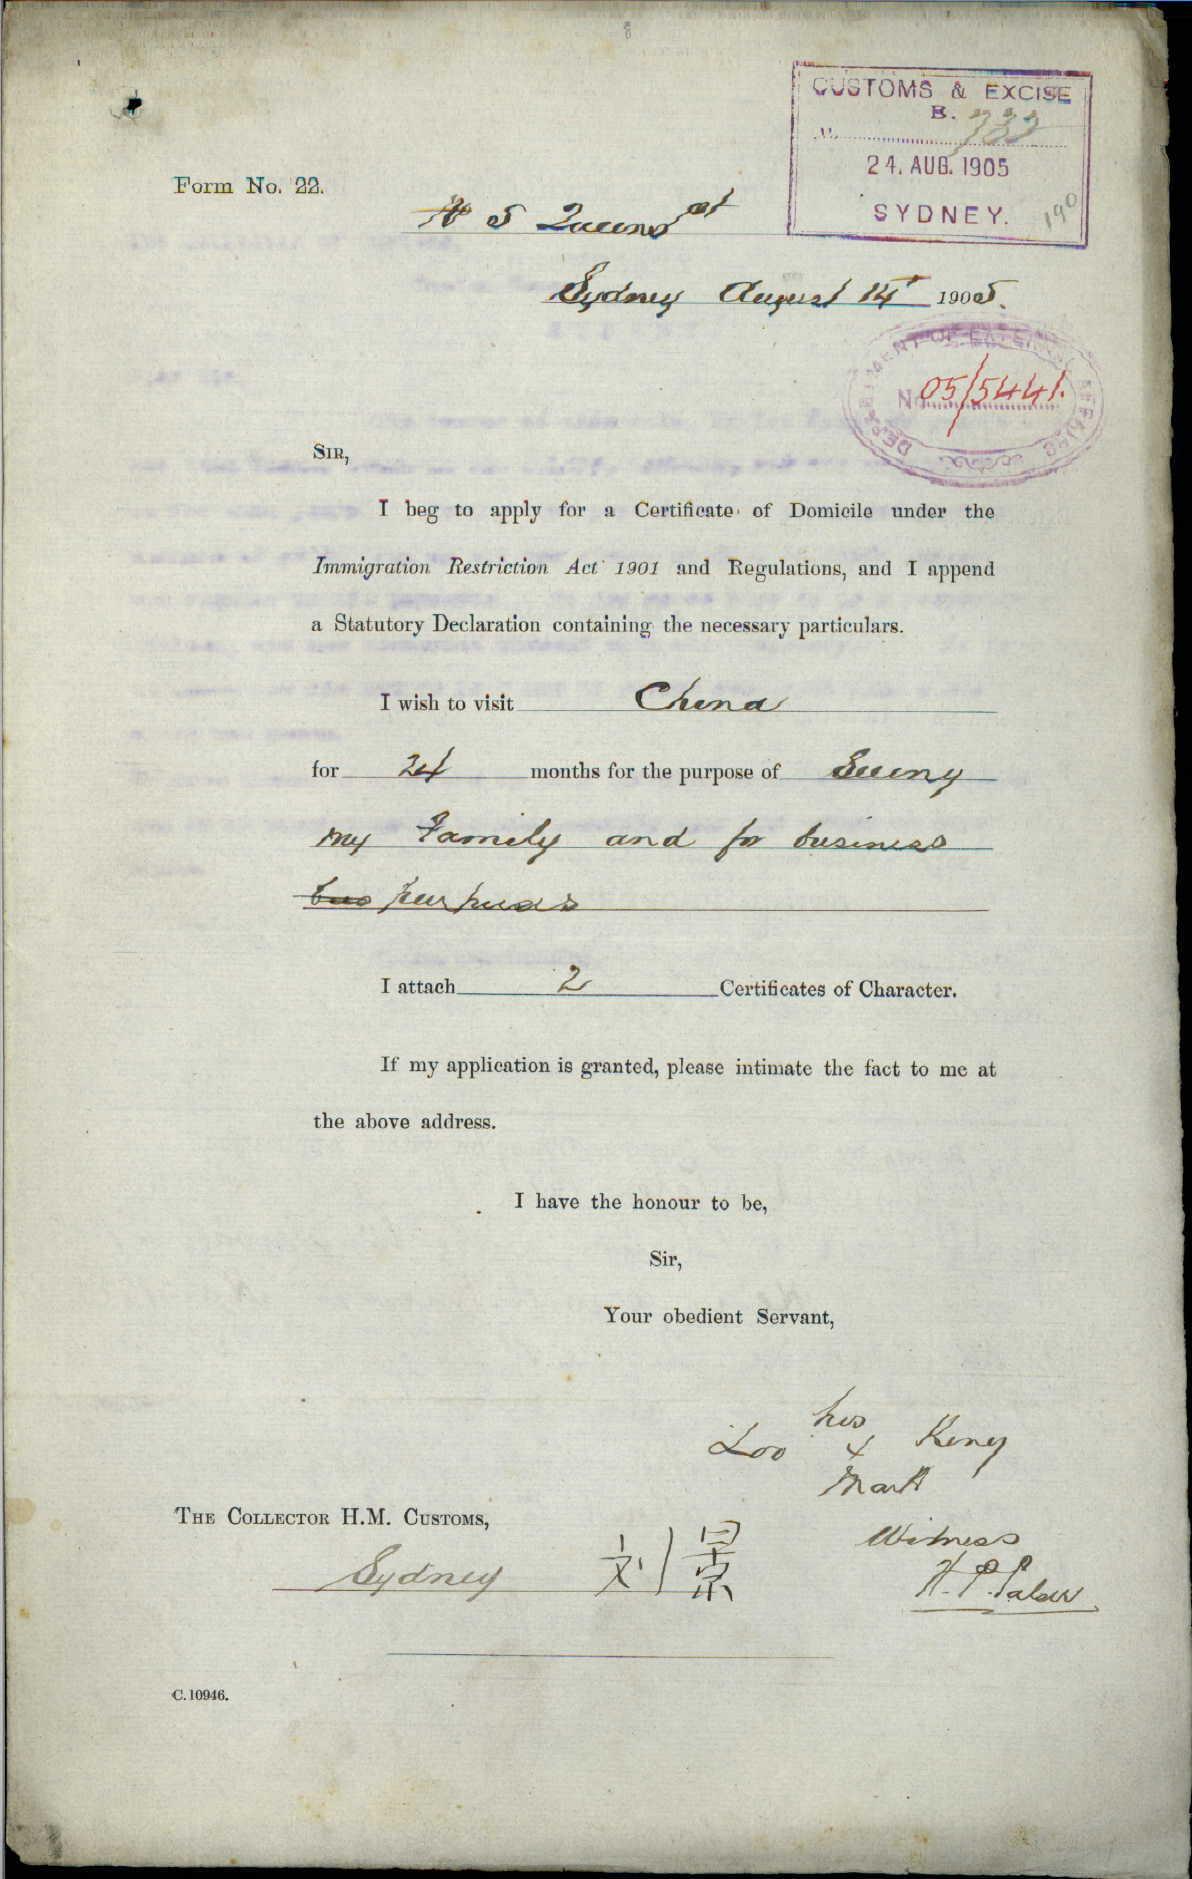 CUSTOMS & EXCISE
B.
No. 733
24. AUG. 1905
SYDNEY.
190
Form No. 22.
No 5 Queens
Sydney August 14 1905.
DEPARTMENT OF EXTERNAL AFFAIRS
No. 05/5441.
SIR,
I beg to apply for a Certificate of Domicile under the
Immigration Restriction Act 1901 and Regulations, and I append
a Statutory Declaration containing the necessary particulars.
I wish to visit China
for 24 months for the purpose of Seeing
my Family and for business
bus purpuses
I attach 2 Certificates of Character.
If my application is granted, please intimate the fact to me at
the above address.
I have the honour to be,
Sir,
Your obedient Servant,
his
Loo x King
Mark
THE COLLECTOR H.M. CUSTOMS,
Witness
Sydney 刘景
C. 10946.